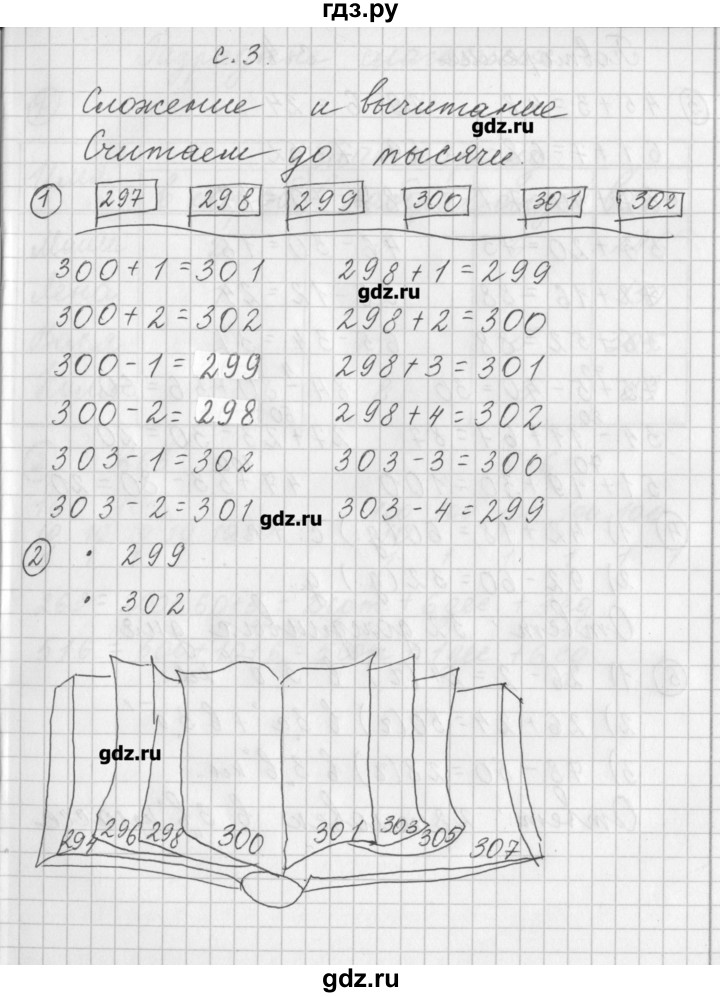 гдз.ру
с. 3.
Сложение и вычитание
gdz.ru
Считаем до тысячи.
1 297 298 299 300 301 302
300 + 1 = 301 298 + 1 = 299
gdz.ru
300 + 2 = 302 298 + 2 = 300
300 - 1 = 299 298 + 3 = 301
300 - 2 = 298 298 + 4 = 302
303 - 1 = 302 303 - 3 = 300
303 - 2 = 301 303 - 4 = 299
gdz.ru
2 • 299
• 302
gdz.ru
294 296 298 300 301 303 305 307
gdz.ru